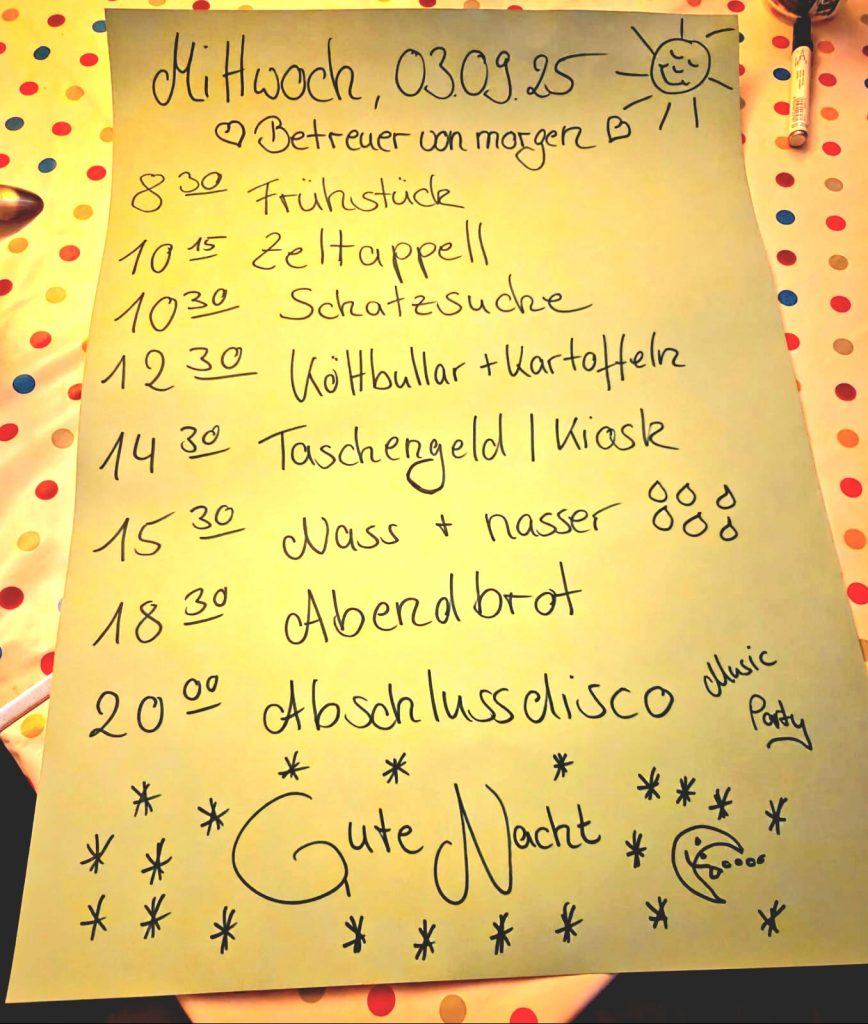 Mittwoch, 03.09.25
Betreuer von morgen
8 30 Frühstück
10 15 Zeltappell
10 30 Schatzsuche
12 30 Köttbullar + Kartoffeln
14 30 Taschengeld | Kiosk
15 30 Nass + nasser
18 30 Abendbrot
20 00 Abschlussdisco Music
Party
Gute Nacht